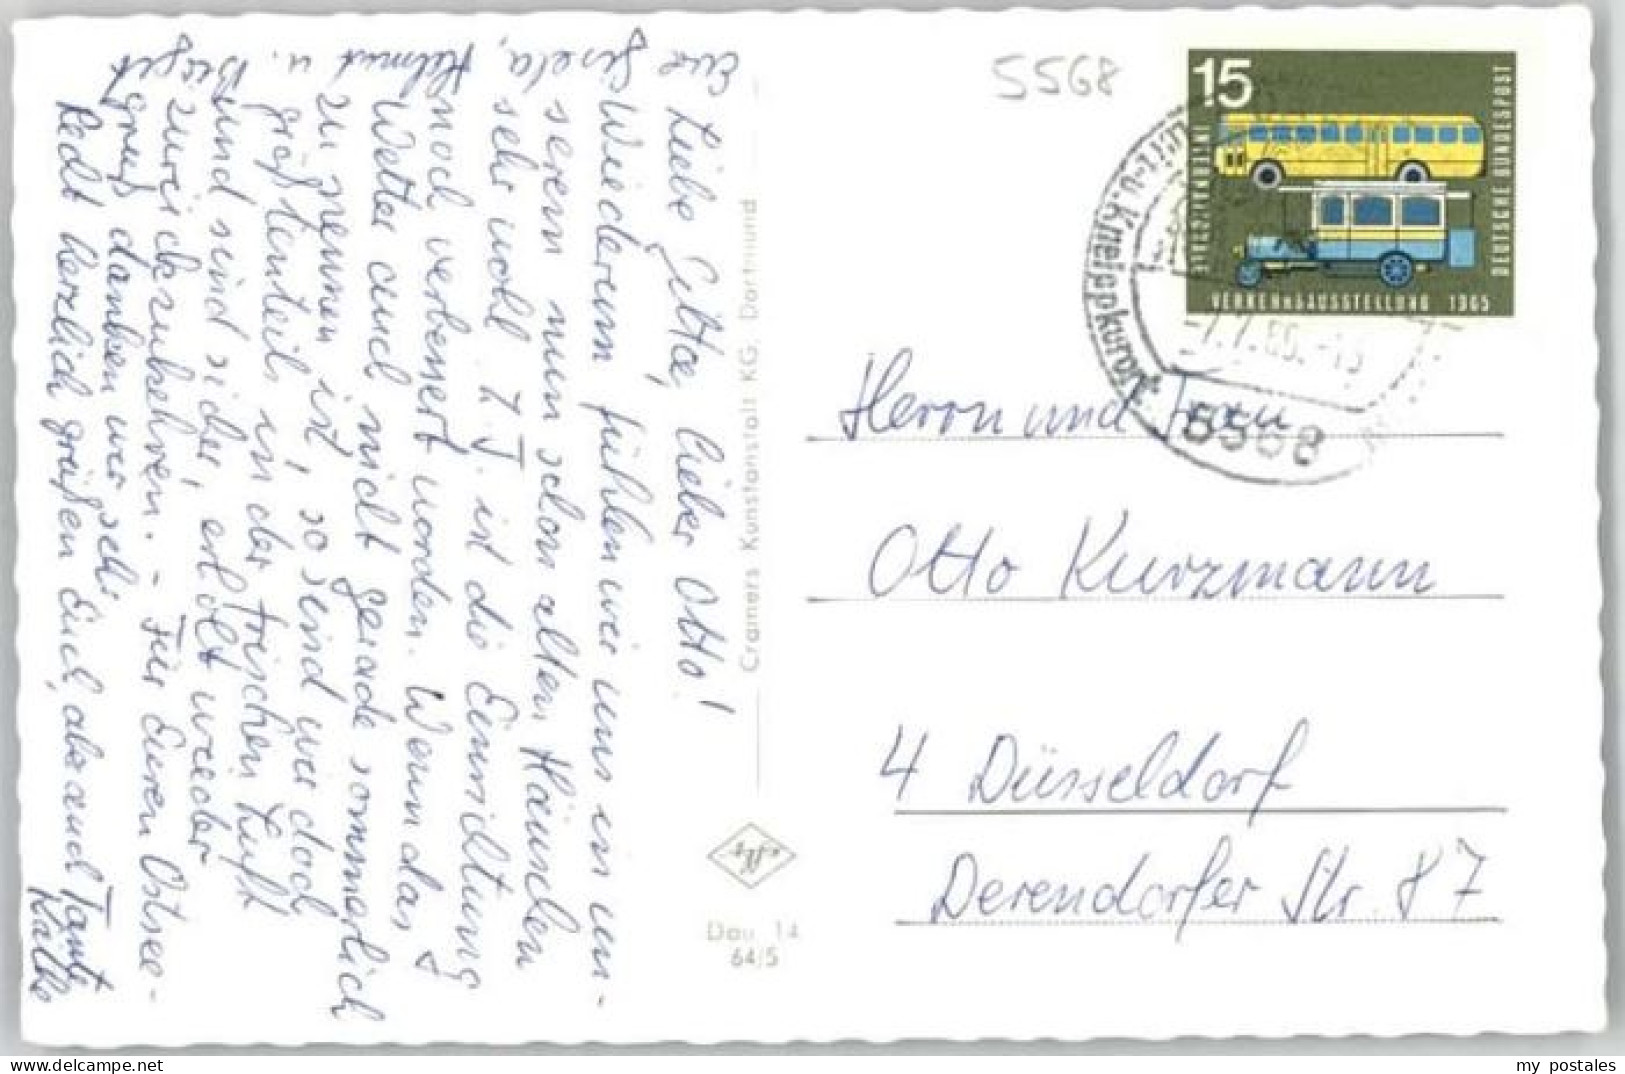 Liebe Gitta, lieber Otto!
Wiederum fühlen wir uns in un-
serem nun schon alten Häuschen
sehr wohl. Z. T. ist die Einrichtung
noch verbessert worden. Wenn das
Wetter auch nicht gerade sommerlich
zu nennen ist, so sind wir doch
größtenteils in der frischen Luft
und sind sicher, erholt wieder
zurückzukehren. - Für Euren Ostsee-
gruß danken wir sehr
Recht herzlich grüßen Euch, aber auch Tante
Käthe
Eure
Gisela,
Helmut
u. Birgit
Cramers Kunstanstalt KG, Dortmund
Dau 14
64/5
5568
15
INTERNATIONALE
VERKEHRSAUSSTELLUNG 1965
DEUTSCHE BUNDESPOST
u. Kneippkurort
-7.7.65.-15
5568
Herrn und Frau
Otto Kurzmann
4 Düsseldorf
Derendorfer Str. 87
delcampe.net
my_postales